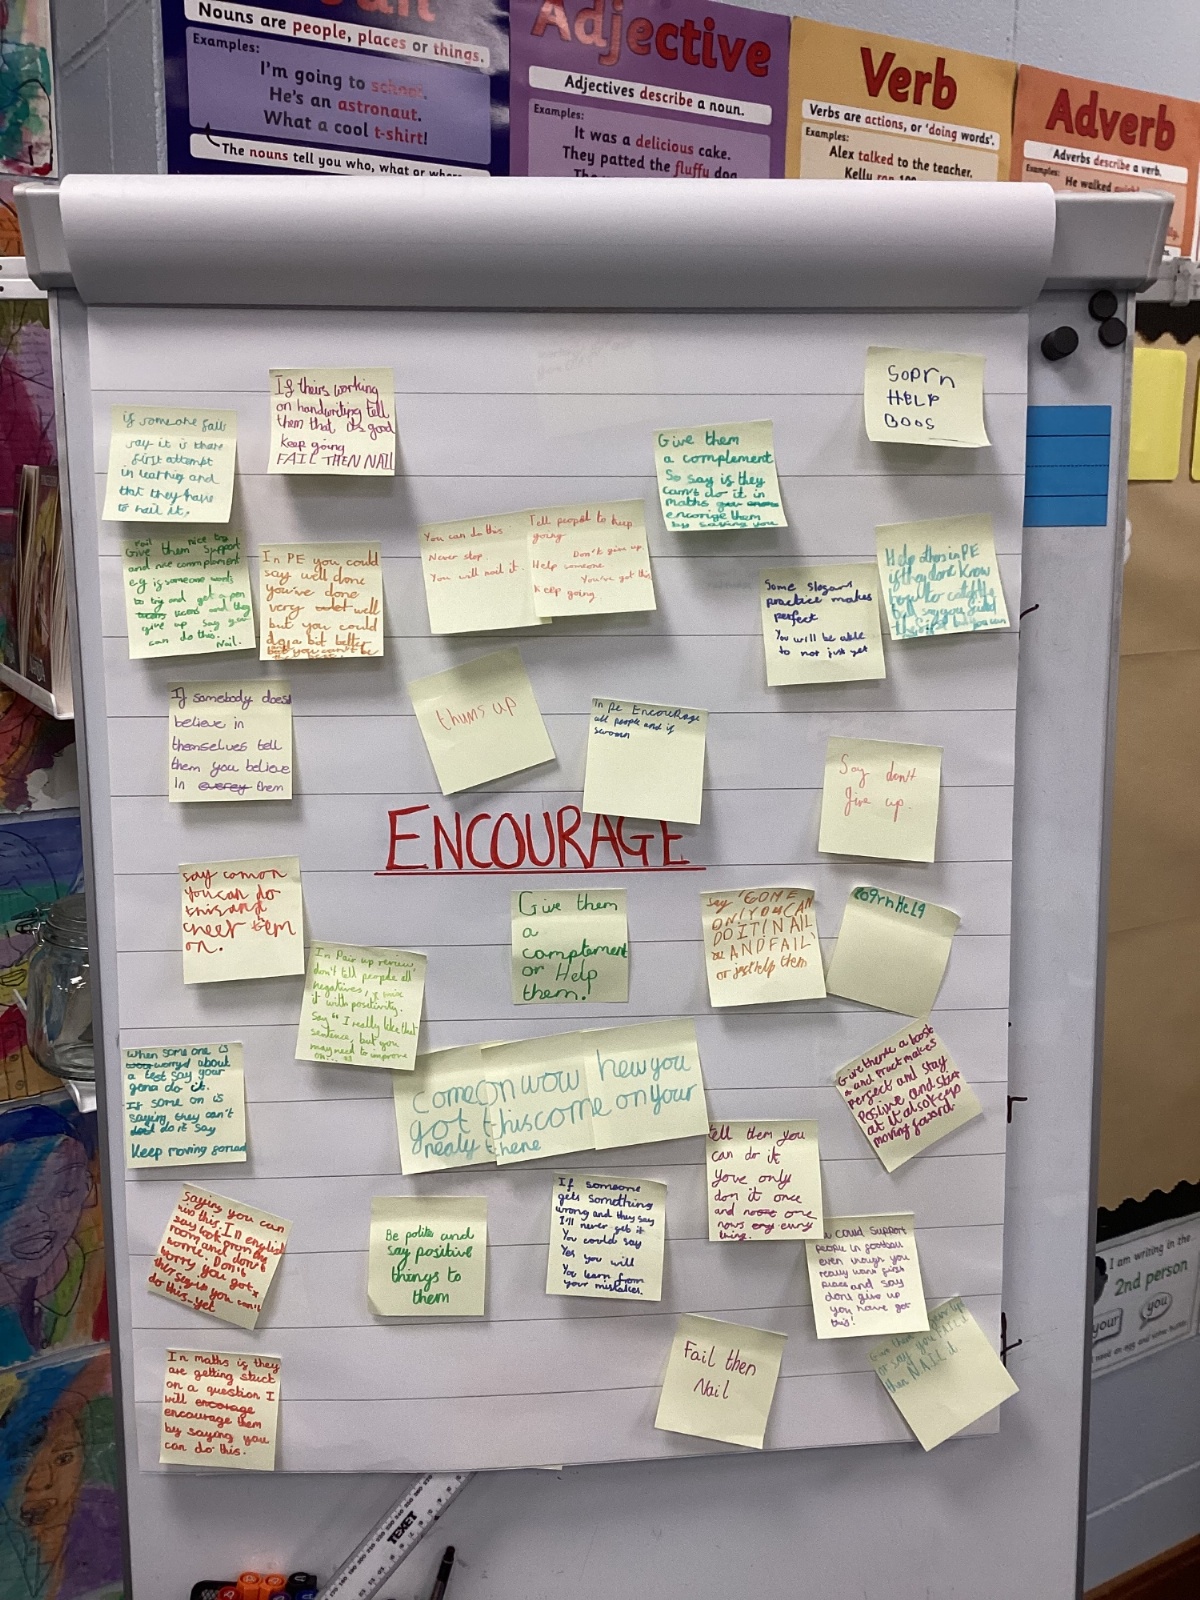 Nouns are people, places or things.
Examples:
I'm going to school.
He's an astronaut.
What a cool t-shirt!
The nouns tell you who, what or where
Adjective
Adjectives describe a noun.
Examples:
It was a delicious cake.
They patted the fluffy dog.
Verb
Verbs are actions, or 'doing words'.
Examples:
Alex talked to the teacher.
Kelly ran 100
Adverb
Adverbs describe a verb.
Examples:
He walked
if someone fails
say it is there
first attempt
in learning and
that they have
to nail it.
If theirs working
on handwriting tell
them that its good
keep going
FAIL THEN NAIL
Give them
a complement
So say is they
can't do it in
maths
encorige them
by saying you
Soprn
HELP
BOOS
nice try
Give them support
and nice complement
e.g is someone wants
to try and get a pen
and they
give up say you
can do this.
Nail.
In PE you could
say well done
you've done
very well
but you could
do a bit better
but you can't be
You can do this
Never stop.
You will nail it.
Tell people to keep
going
Don't give up.
Help someone
You've got this
Keep going
Some slogans
practice makes
perfect
You will be able
to not just yet
Help others in PE
if they dont know
how to catch a
ball say you
If somebody does
believe in
themselves tell
them you believe
in them
thums up
In pe Encourage
all people and if
Say don't
give up.
ENCOURAGE
say comon
you can do
this and
cheer them
on.
In Pair up review
don't tell people all
negatives,
it with positivity.
Say "I really like that
sentence, but you
may need to improve
on...."
Give them
a
complement
or Help
them!
Say 'COME
ON! YOU CAN
DO IT! NAIL
AND FAIL'
or just help them
When some one is
about
a test say your
gona do it.
If some on is
saying they can't
do it say
Keep moving
come on wow hew you
got this come on your
nealy there
Give them a boost
and pract makes
perfect and stay
positive and
at it also keep
moving foward.
tell them you
can do it
yove only
don it once
and one
nows evry
thing.
Saying you can
do this. In english
say look
room and don't
worrie. Don't
worry you got
this say is you can't
do this... yet
Be polite and
say positive
things to
them
If someone
gets something
wrong and they say
I'll never get it
You could say
Yes you will
You learn from
your mistakes.
You could support
people in football
even though you
really want first
place and say
dont give up
you have got
this!
Fail then
Nail
In maths is they
are getting stuck
on a question I
will
encourage them
by saying you
can do this.
I am writing in the
2nd person
your
you
TEXET